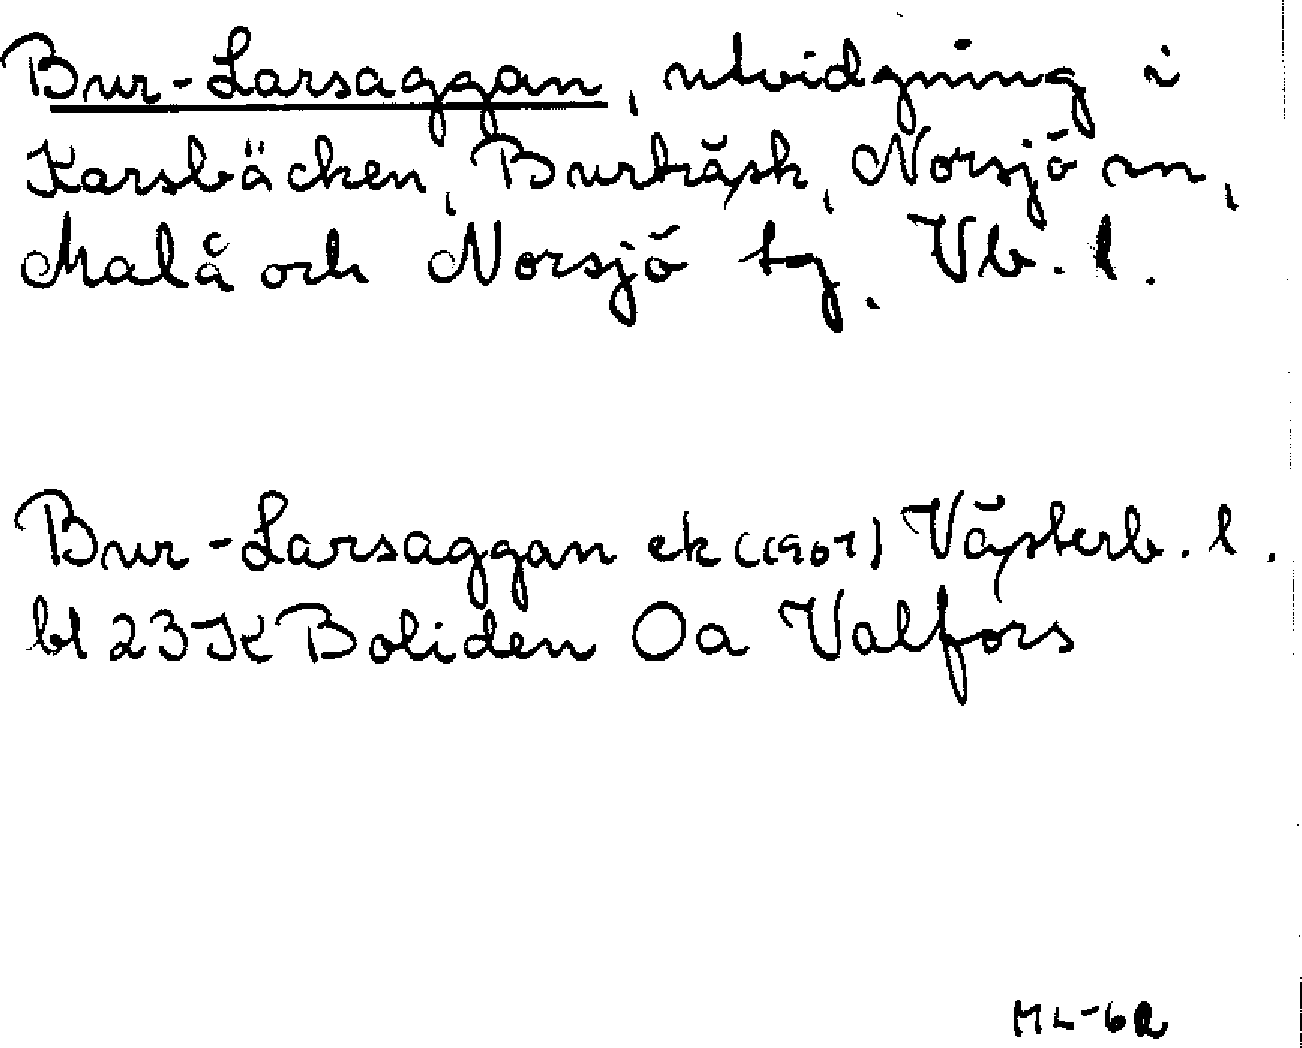 Bur-Larsaggan, utvidgning i
Karsbäcken, Burträsk, Norsjö sn,
Malå och Norsjö tg. Vb. l.
Bur-Larsaggan ek (1967) Västerb. l.
bl 23K Boliden 0a Valfors